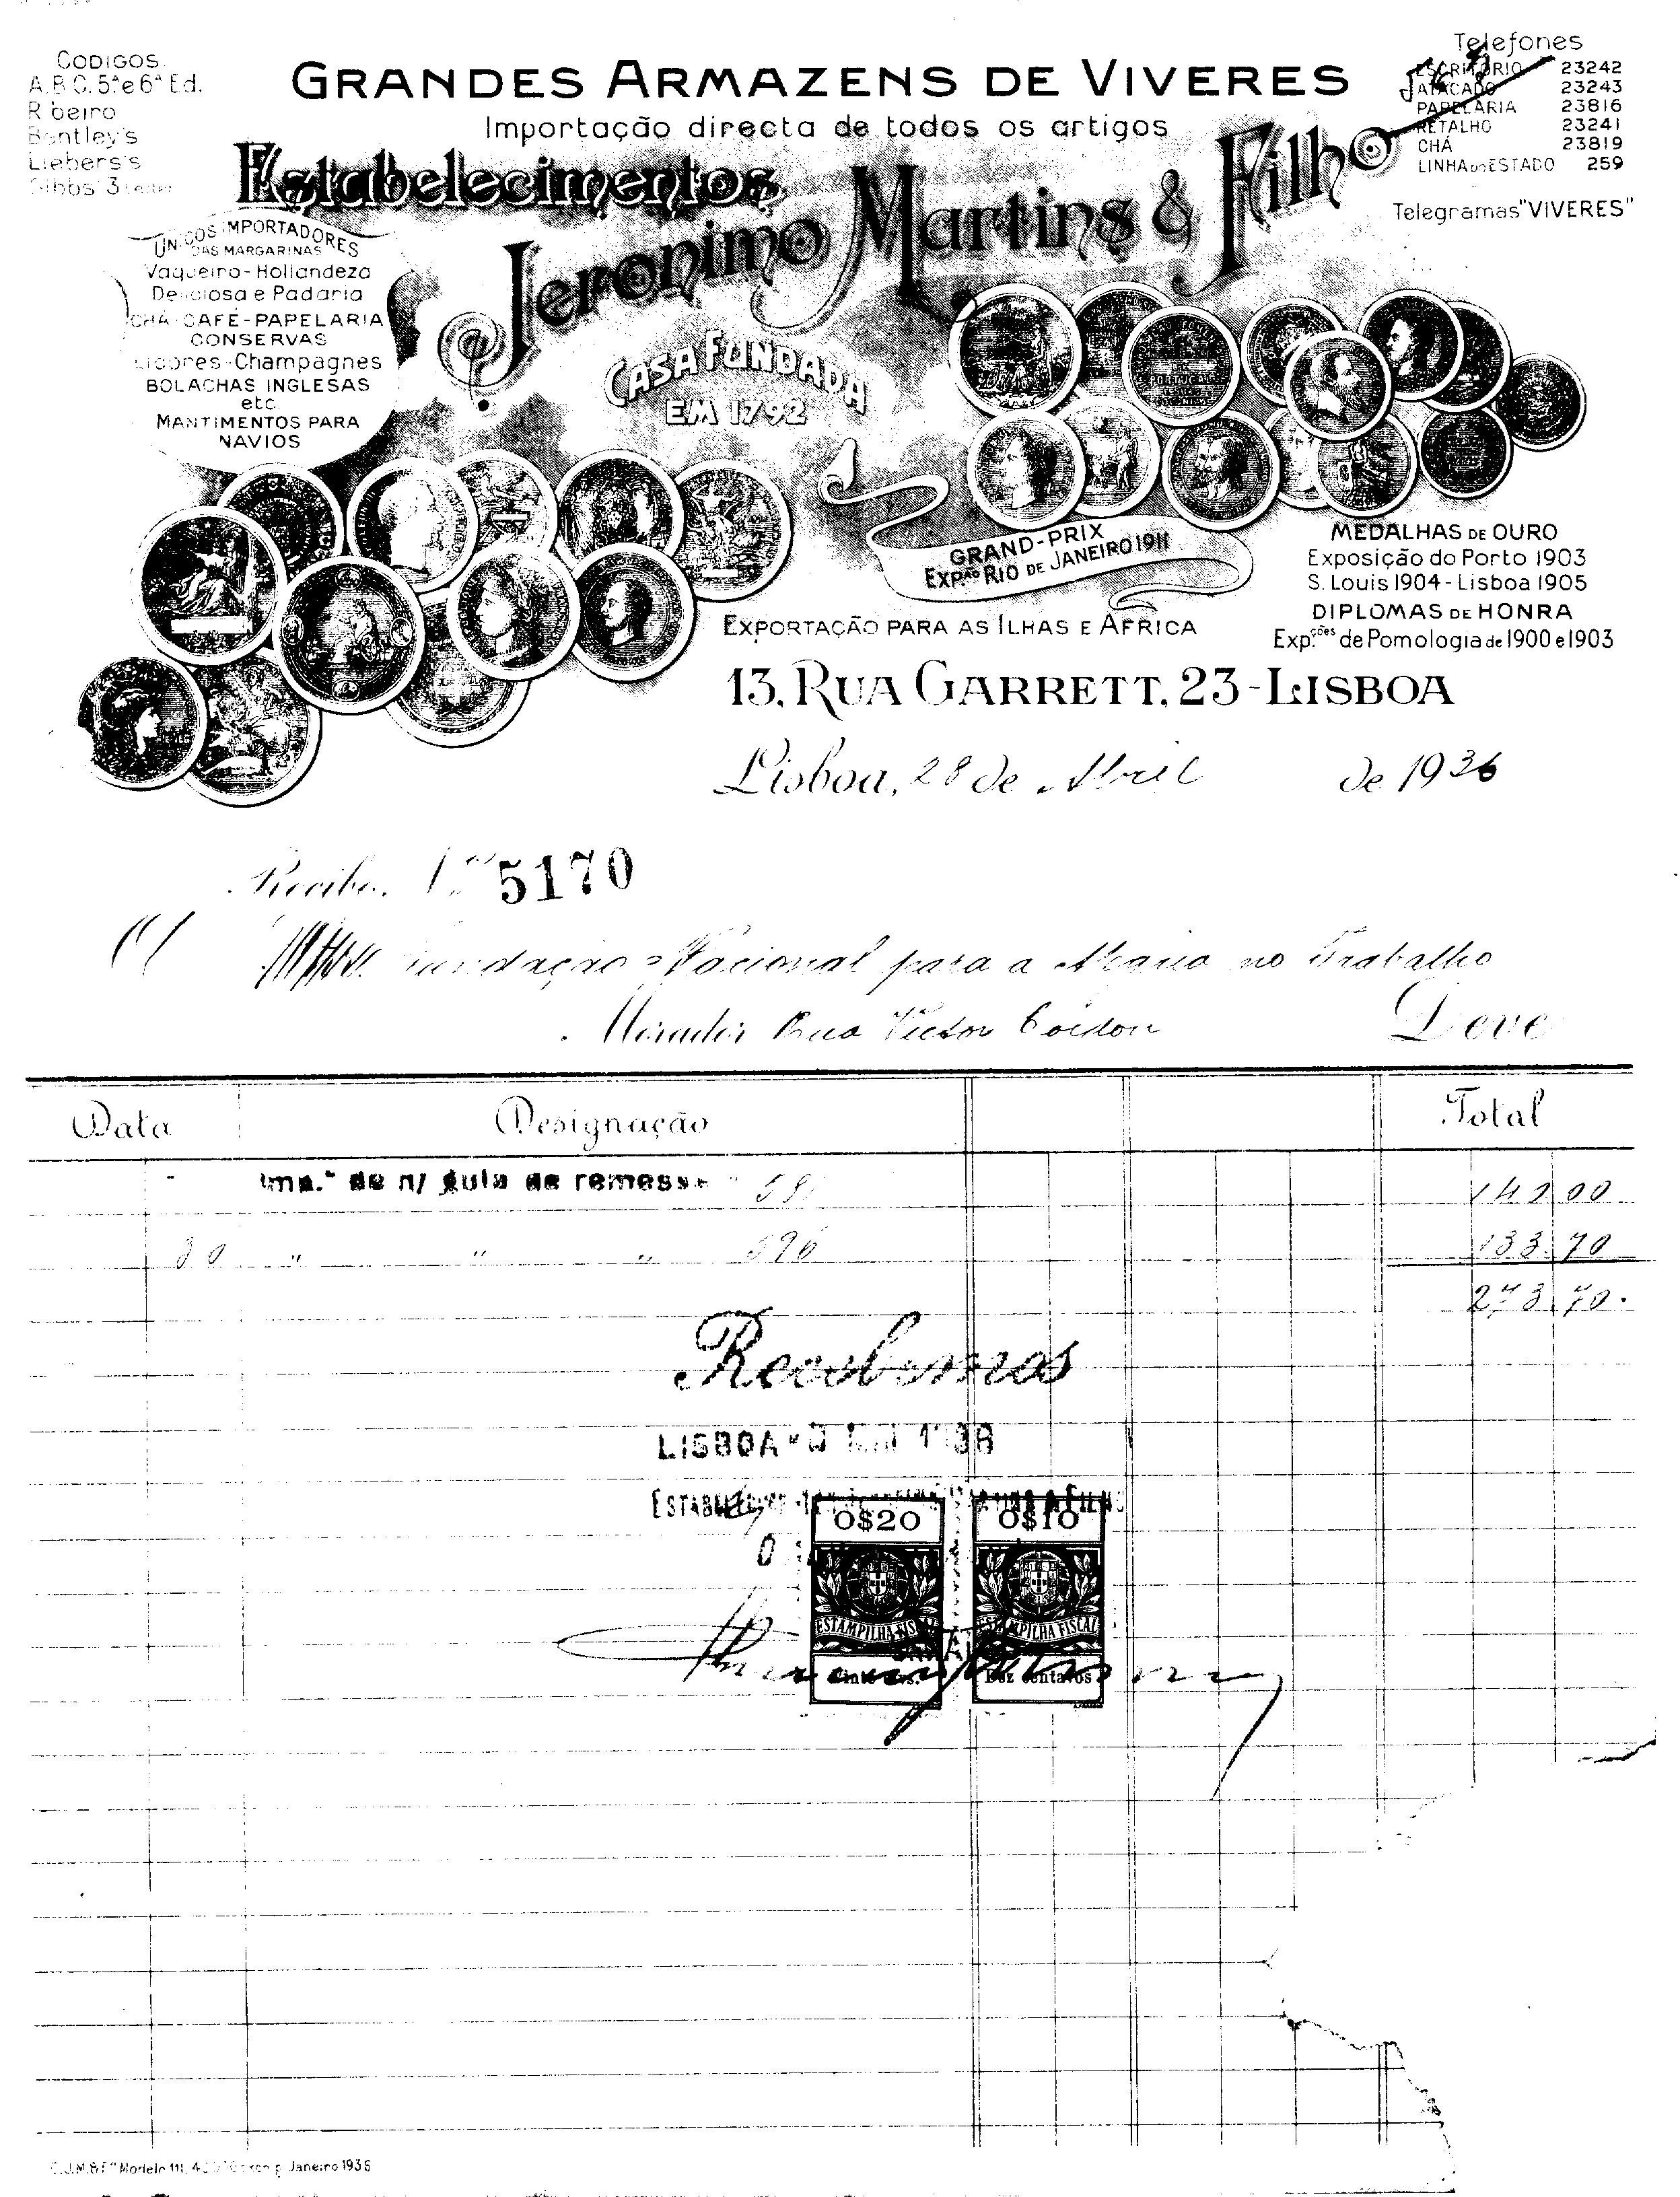 CODIGOS
A.B.C. 5ª e 6ª Ed.
Ribeiro
Bentley's
Liebers's
GRANDES ARMAZENS DE VIVERES
Importação directa de todos os artigos
Estabelecimentos
Jeronimo Martins & Filho
CASA FUNDADA
EM 1792
Telefones
ESCRITÓRIO 23242
ATACADO 23243
PAPELARIA 23816
RETALHO 23241
CHÁ 23819
LINHA DO ESTADO 259
Telegramas "VIVERES"
UNICOS IMPORTADORES
DAS MARGARINAS
Vaqueiro - Hollandeza
Deliciosa e Padaria
CHÁ - CAFÉ - PAPELARIA
CONSERVAS
Licores - Champagnes
BOLACHAS INGLESAS
etc
MANTIMENTOS PARA
NAVIOS
GRAND-PRIX
EXPÃO RIO DE JANEIRO 1911
MEDALHAS DE OURO
Exposição do Porto 1903
S. Louis 1904 - Lisboa 1905
DIPLOMAS DE HONRA
Exp.ções de Pomologia de 1900 e 1903
EXPORTAÇÃO PARA AS ILHAS E AFRICA
13, RUA GARRETT, 23 - LISBOA
Lisboa, 28 de Abril de 1936
Recibo Nº 5170
Fundação Nacional para a Alegria no Trabalho
Morador Rua Victor Cordon Deve
Data Designação Total
Imp.ª de n/ guia de remessa
30 " " " 596 133.70
273.70.
Recebemos
LISBOA
0$20 0$10
ESTAMPILHA FISCAL ESTAMPILHA FISCAL
Dez centavos
Modelo 111, Janeiro 1936